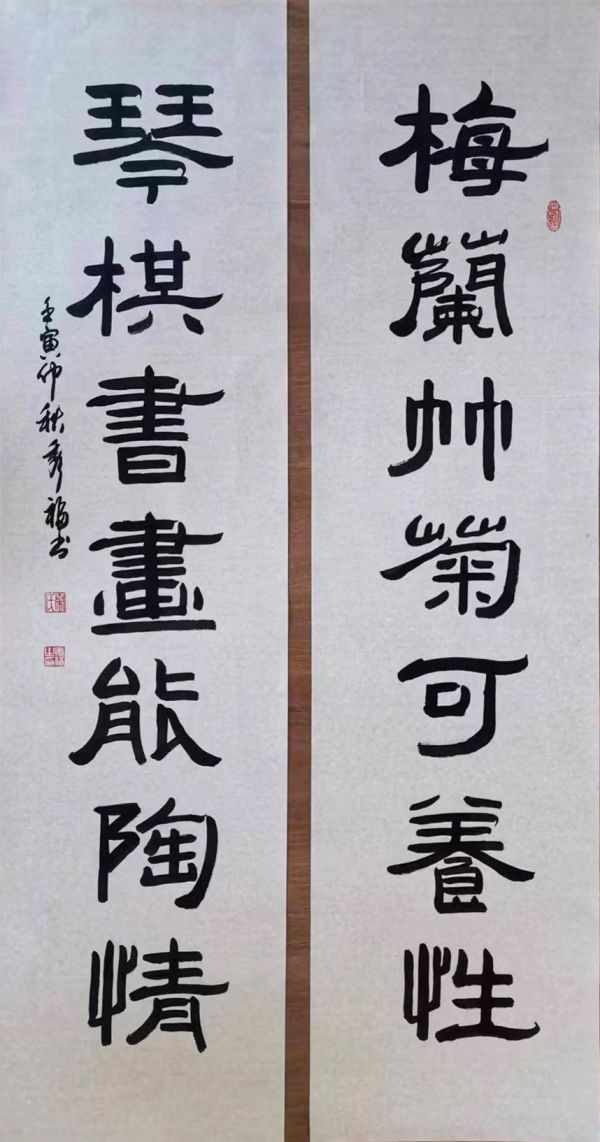 梅蘭竹菊可養性
琴棋書畫能陶情
壬寅仲秋秀福书